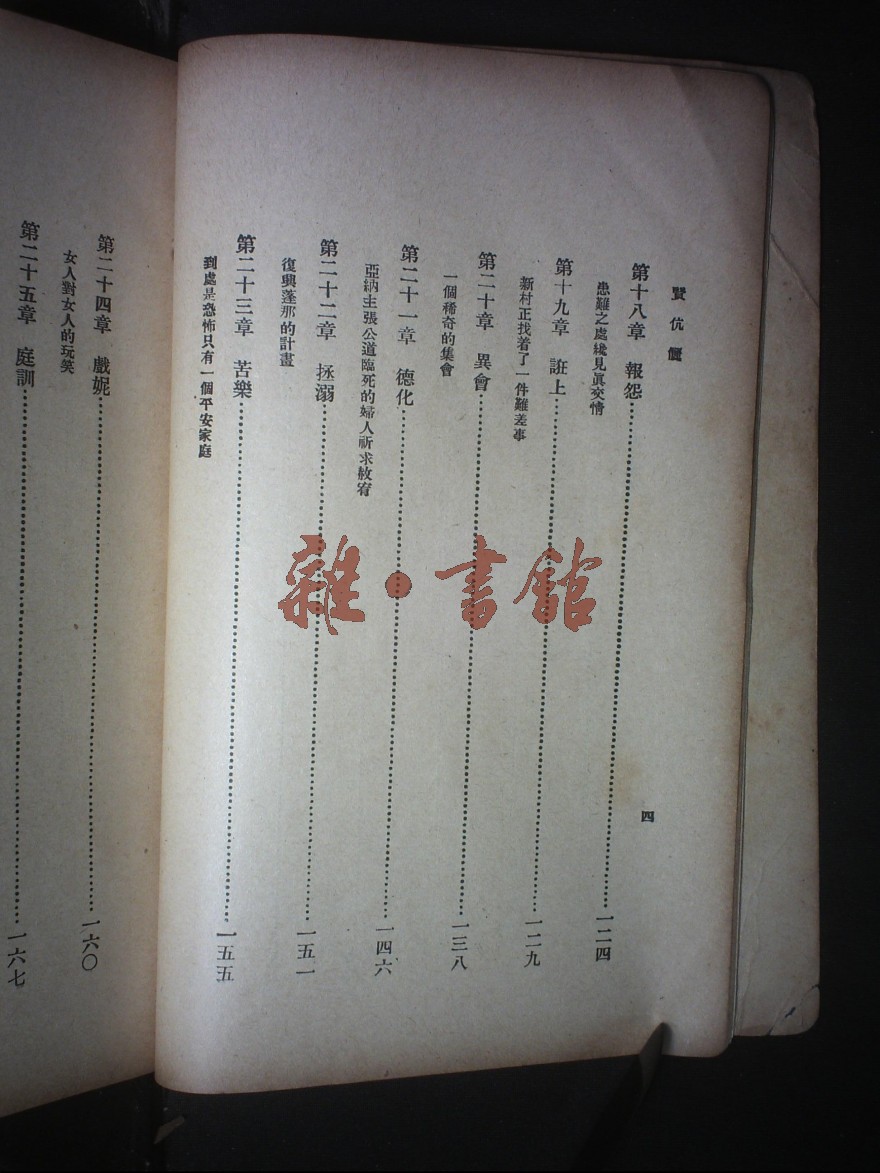 賢伉儷
第十八章　報怨……一二四
患難之處纔見眞交情
第十九章　誑上……一二九
新村正找着了一件難差事
第二十章　異會……一三八
一個稀奇的集會
第二十一章　德化……一四六
亞納主張公道臨死的婦人祈求赦宥
第二十二章　拯溺……一五一
復興蓬那的計畫
第二十三章　苦樂……一五五
到處是恐怖只有一個平安家庭
四
第二十四章　戲妮……一六〇
女人對女人的玩笑
第二十五章　庭訓……一六七
雜·書館